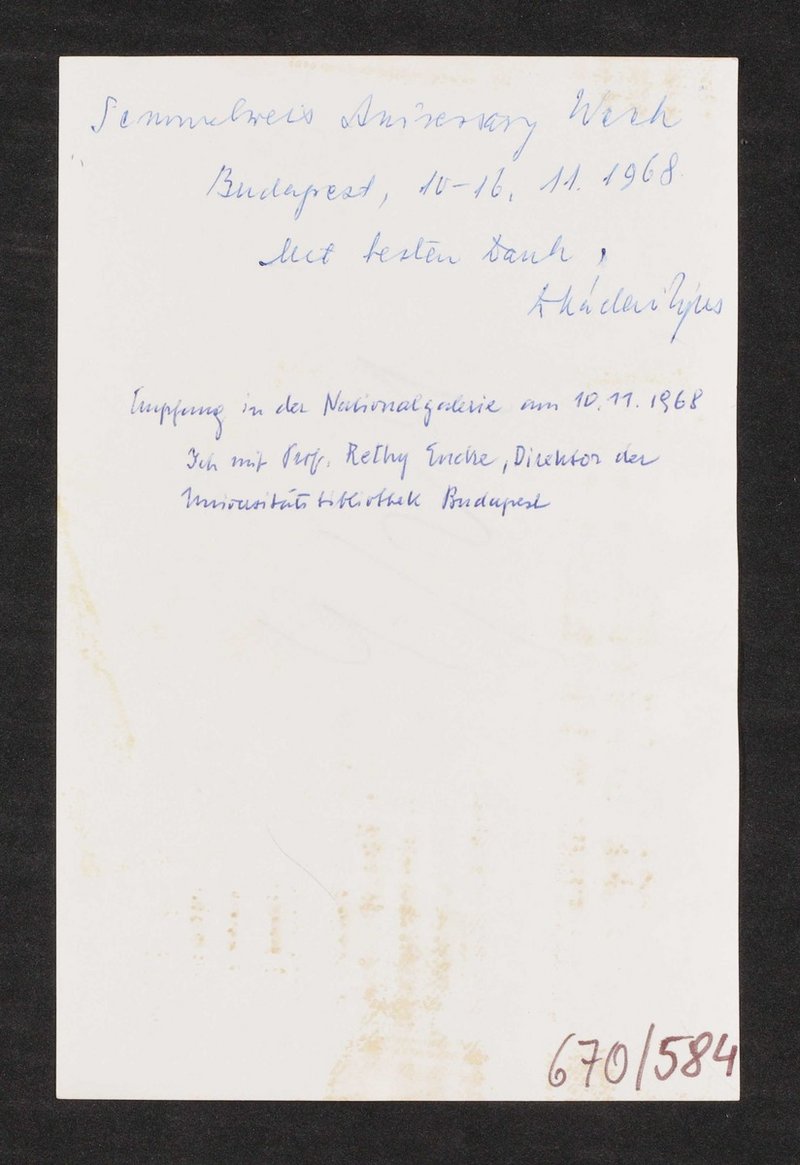 Semmelweis Aniversary Week
Budapest, 10-16. 11. 1968
Mit besten Dank,
Empfang in der Nationalgalerie am 10.11.1968
Ich mit Prof. Rethy Endre, Direktor der
Universitätsbibliothek Budapest
670/584